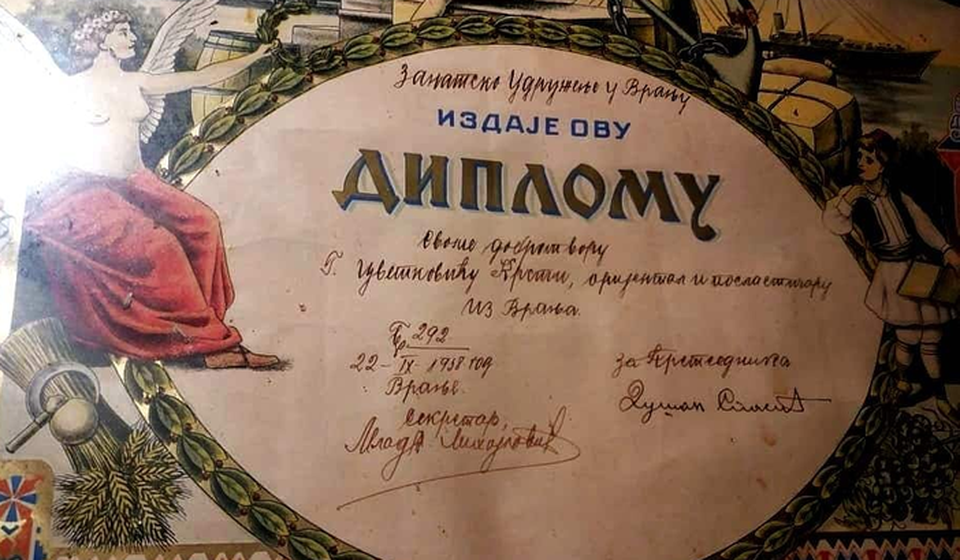 Занатско Удружење у Врању
ИЗДАЈЕ ОВУ
ДИПЛОМУ
Своме добротвору
Г. Цветковићу Крсти, оријентал и посластичару
из Врања.
Бр. 292
22-IX-1938 год
Врање.
за Претседника
Секретар,
Душан
Млада Михајловић